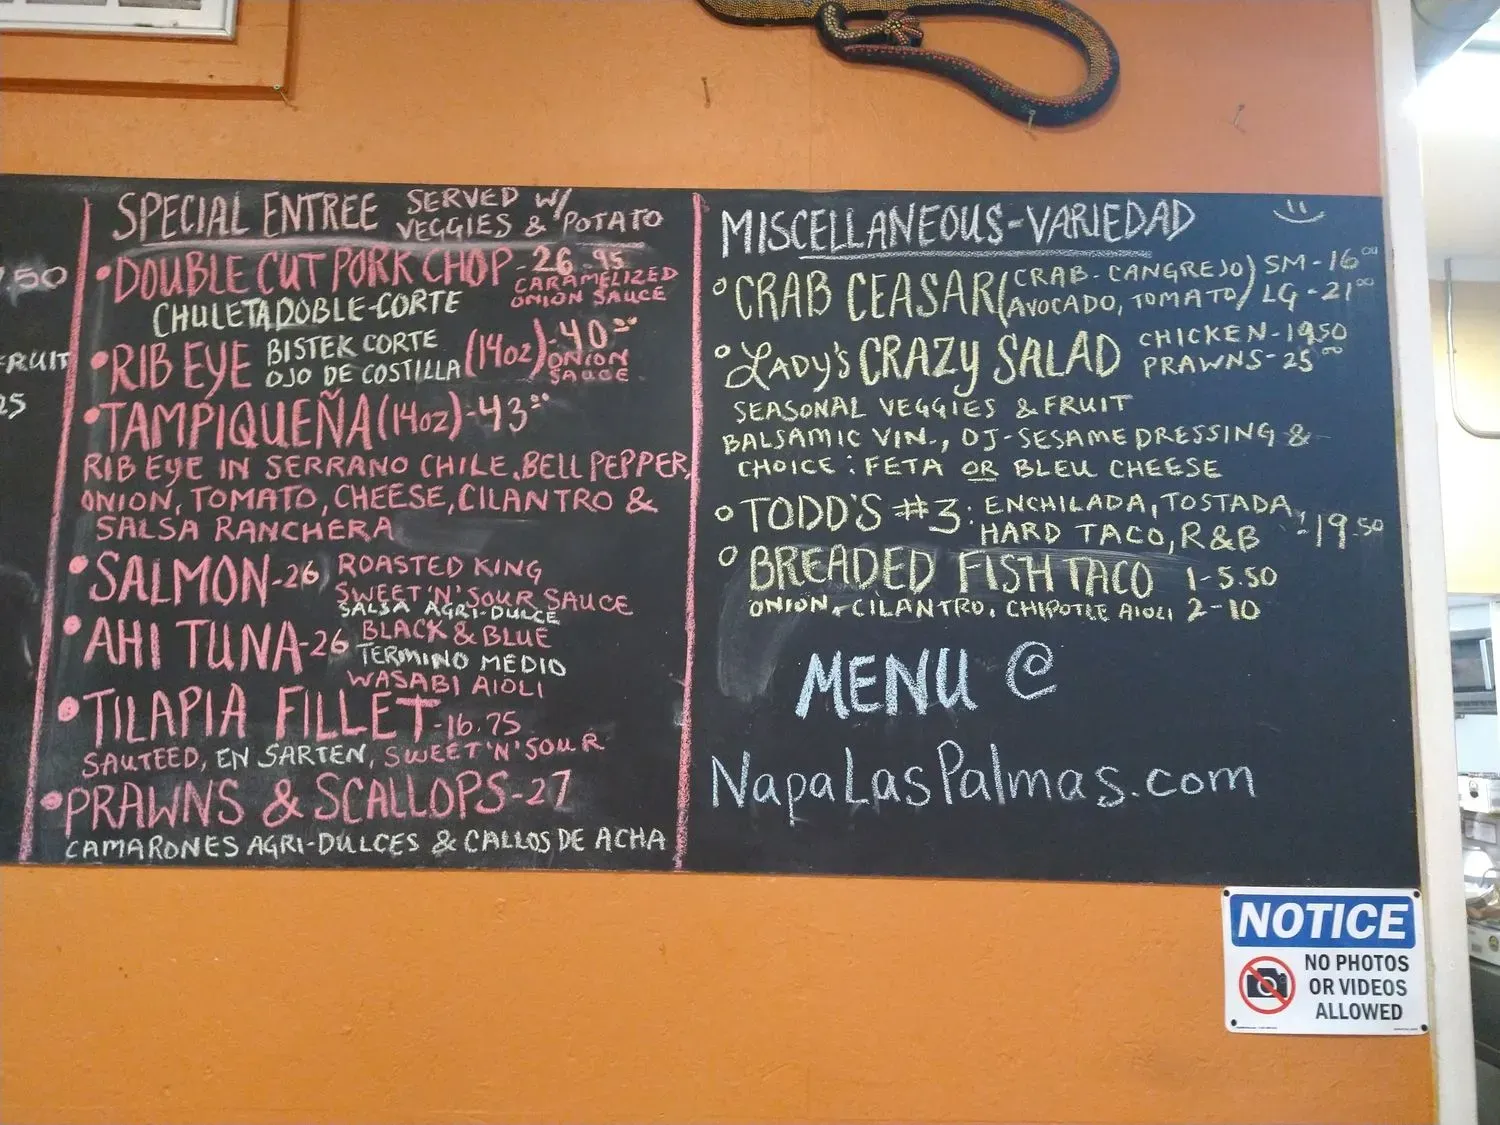 .50
FRUIT
25
SPECIAL ENTREE SERVED W/
VEGGIES & POTATO
• DOUBLE CUT PORK CHOP - 26.95
CARAMELIZED
ONION SAUCE
CHULETA DOBLE-CORTE
• RIB EYE BISTEK CORTE
OJO DE COSTILLA (14oz) - 40.00
ONION
SAUCE
• TAMPIQUEÑA (14oz) - 43.00
RIB EYE IN SERRANO CHILE, BELL PEPPER,
ONION, TOMATO, CHEESE, CILANTRO &
SALSA RANCHERA
• SALMON - 26 ROASTED KING
SWEET 'N' SOUR SAUCE
SALSA AGRI-DULCE
• AHI TUNA - 26 BLACK & BLUE
TERMINO MEDIO
WASABI AIOLI
• TILAPIA FILLET - 16.75
SAUTEED, EN SARTEN, SWEET 'N' SOUR
• PRAWNS & SCALLOPS - 27
CAMARONES AGRI-DULCES & CALLOS DE ACHA
MISCELLANEOUS-VARIEDAD
° CRAB CEASAR (CRAB-CANGREJO) SM - 16.00
AVOCADO, TOMATO) LG - 21.00
° LADY'S CRAZY SALAD CHICKEN - 19.50
PRAWNS - 25.00
SEASONAL VEGGIES & FRUIT
BALSAMIC VIN., OJ-SESAME DRESSING &
CHOICE: FETA OR BLEU CHEESE
° TODD'S #3: ENCHILADA, TOSTADA,
HARD TACO, R&B - 19.50
° BREADED FISH TACO 1 - 5.50
ONION, CILANTRO, CHIPOTLE AIOLI 2 - 10
MENU @
NapaLasPalmas.com
NOTICE
NO PHOTOS
OR VIDEOS
ALLOWED